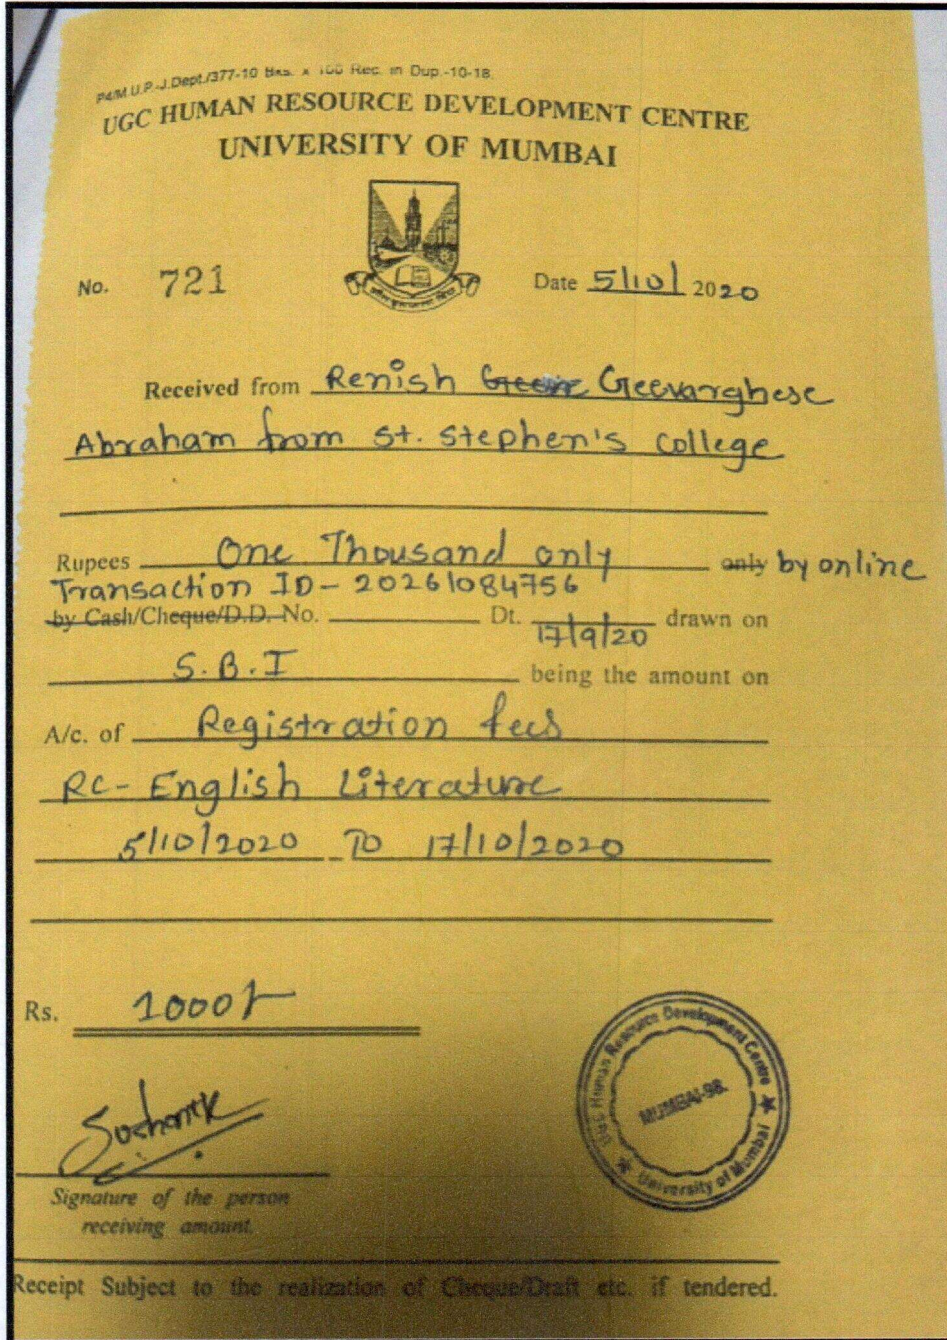 P4/M.U.P.-J.Dept./377-10 Bks. x 100 Rec. in Dup.-10-18.
UGC HUMAN RESOURCE DEVELOPMENT CENTRE
UNIVERSITY OF MUMBAI
No. 721 Date 5/10/ 2020
Received from Renish Geevarghese
Abraham from St. Stephen's College
Rupees One Thousand only only by online
Transaction ID - 20261084756
by Cash/Cheque/D.D. No. Dt. 17/9/20 drawn on
S.B.I being the amount on
A/c. of Registration fees
RC - English Literature
5/10/2020 To 17/10/2020
Rs. 1000/-
Signature of the person
receiving amount.
UGC Human Resource Development Centre
MUMBAI-98.
University of Mumbai
Receipt Subject to the realization of Cheque/Draft etc. if tendered.